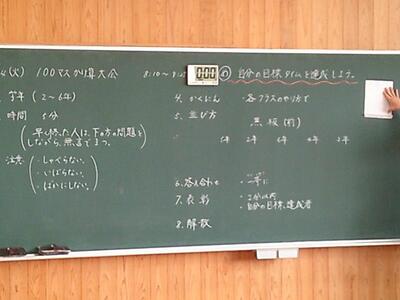 4.(火) 100マスかけ算大会 8:10〜
0:00
め 自分の目標タイムを達成しよう。
学年 (2〜6年)
時間 5分
(早く終った人は、下の方の問題を
しながら、無言でまつ。)
注意 ・しゃべらない。
・いばらない。
・ばかにしない。
4. かくにん 各クラスのやり方で
5. 並び方 黒板(前)
6. 答え合わせ 一斉に
7. 表彰 ・2分以内
・自分の目標、達成者
8. 解散